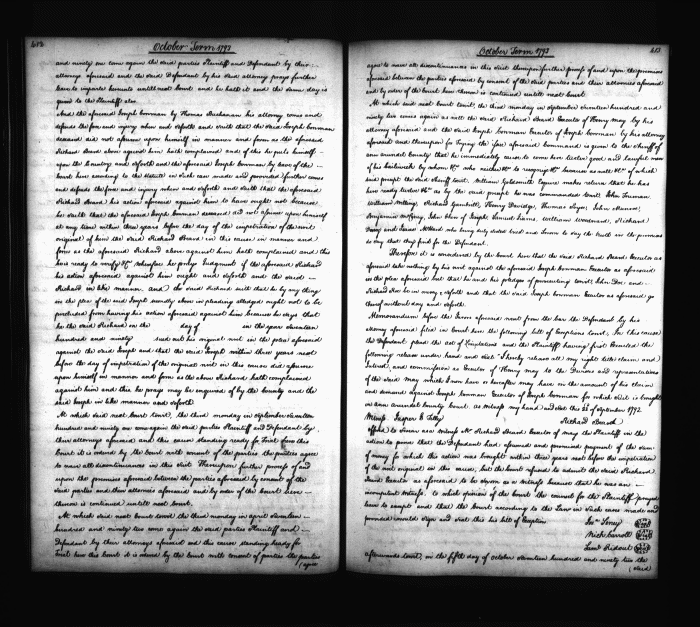 412
October Term 1793
and ninety one came again the said parties Plaintiff and Defendant by their
attorneys aforesaid and the said Defendant by his said attorney prays further
leave to imparle hereunto untill next court and he hath it and the same day is
given to the Plaintiff also
And the aforesaid Joseph Bowman by Thomas Buchanan his attorney comes and
defends the force and injury when and so forth and saith that the said Joseph Bowman
deceased did not assume upon himself in manner and form as the aforesaid
Richard Beard above against him hath complained and of this he puts himself
upon the Country and so forth and the aforesaid Joseph Bowman by leave of the
court here according to the statute in such case made and provided further comes
and defends the force and injury when and so forth and saith that the aforesaid
Richard Beard his action aforesaid against him to have ought not because
he saith that the aforesaid Joseph Bowman deceased did not assume upon himself
at any time within three years before the day of the impetration of the writ
original of him the said Richard Beard in this cause in manner and
form as the aforesaid Richard above against him hath complained and this
he is ready to verify wherefore he prays Judgment if the aforesaid Richard
his action aforesaid against him ought and so forth and the said
Richard in like manner and the said Richard saith that he by any thing
in the plea of the said Joseph secondly above in pleading alledged ought not to be
precluded from having his action aforesaid against him because he says that
he the said Richard on the day of in the year seventeen
hundred and ninety sued out his original writ in the plea aforesaid
against the said Joseph and that the said Joseph within three years next
before the day of impetration of the original writ in this cause did assume
upon himself in manner and form as the above Richard hath complained
against him and this he prays may be enquired of by the Country and the
said Joseph in like manner and so forth
At which said next court to wit, the third monday in September seventeen
hundred and ninety one came again the said parties Plaintiff and Defendant by
their attorneys aforesaid and this cause standing ready for Trial before this
Court it is ordered by the Court with consent of the parties the parties agree
to wave all discontinuances in this suit Thereupon further process of and
upon the premises aforesaid between the parties aforesaid by consent of the
said parties and their attorneys aforesaid and by order of the Court here
thereon is continued untill next court.
At which said next court to wit the third monday in april seventeen
hundred and ninety two came again the said parties Plaintiff and
Defendant by their attorneys aforesaid and this cause standing ready for
Trial here this court it is ordered by the Court with consent of parties the parties
(agree
October Term 1793
413
agree to wave all discontinuances in this suit thereupon further process of and upon the premises
aforesaid between the parties aforesaid by consent of the said parties and their attorneys aforesaid
and by order of the Court here thereon is continued untill next court
At which said next court to wit, the third monday in september seventeen hundred and
ninety two comes again as well the said Richard Beard Executor of Henry May by his
attorney aforesaid and the said Joseph Bowman Executor of Joseph Bowman by his attorney
aforesaid and thereupon for Trying the issue aforesaid command is given to the Sheriff of
ann arundel County that he immediately cause to come here twelve good and lawful men
of his bailiwick by whom who neither to recognize because as well of which
said precept the said Sheriff to wit, William Goldsmith Esquire makes return that he has
here ready twelve as by the said precept he was commanded to wit John Truman
William McCay, Richard Gambrill, Henry Davidge, Thomas Tyler, John
Benjamin McKeny, John Shaw of Joseph, Samuel Harris, William Woodward, Richard
Darby and Lucas who being duly elected tried and sworn to say the truth in the premises
do say that they find for the Defendant.
Therefore it is considered by the Court here that the said Richard Beard Executor as
aforesaid take nothing by his writ against the aforesaid Joseph Bowman Executor as aforesaid
in the plea aforesaid but that he and his pledges of prosecuting to wit, John Doe and
Richard Roe be in mercy, and so forth and that the said Joseph Bowman Executor as aforesaid go
thereof without day and so forth
Memorandum before the Jurors aforesaid went from the bar the Defendant by his
attorney aforesaid filed in Court here the following bill of Exceptions to wit, In this cause
the Defendant plead the act of Limitations and the Plaintiff having first Executed the
following release under hand and seal "I hereby release all my right title claim and
Interest, and commission as Executor of Henry May to the Devisees and representatives
of the said May which I now have or hereafter may have on the amount of his claim
and demand against Joseph Bowman Executor of Joseph Bowman for which suit is brought
in ann arundel County court. as Witness my hand and seal this of September 1792
Witness Jasper E Tilly Richard Beard
offered to swear as a witness Mr Richard Beard Executor of May the Plaintiff in the
action to prove that the Defendant had assumed and promised payment of the sum
of money for which this action was brought within three years next before the impetration
of the writ original in this cause, but the court refused to admit the said Richard
Beard Executor as aforesaid to be sworn as a witness because that he was an
incompetent witness. to which opinion of the court the counsel for the Plaintiff prayed
leave to except and that the Court according to the Law in such cases made and
provided would sign and seal this his bill of Exception
Nich Carroll
Ridout
afterwards to wit, on the fifth day of october seventeen hundred and ninety two the
(said